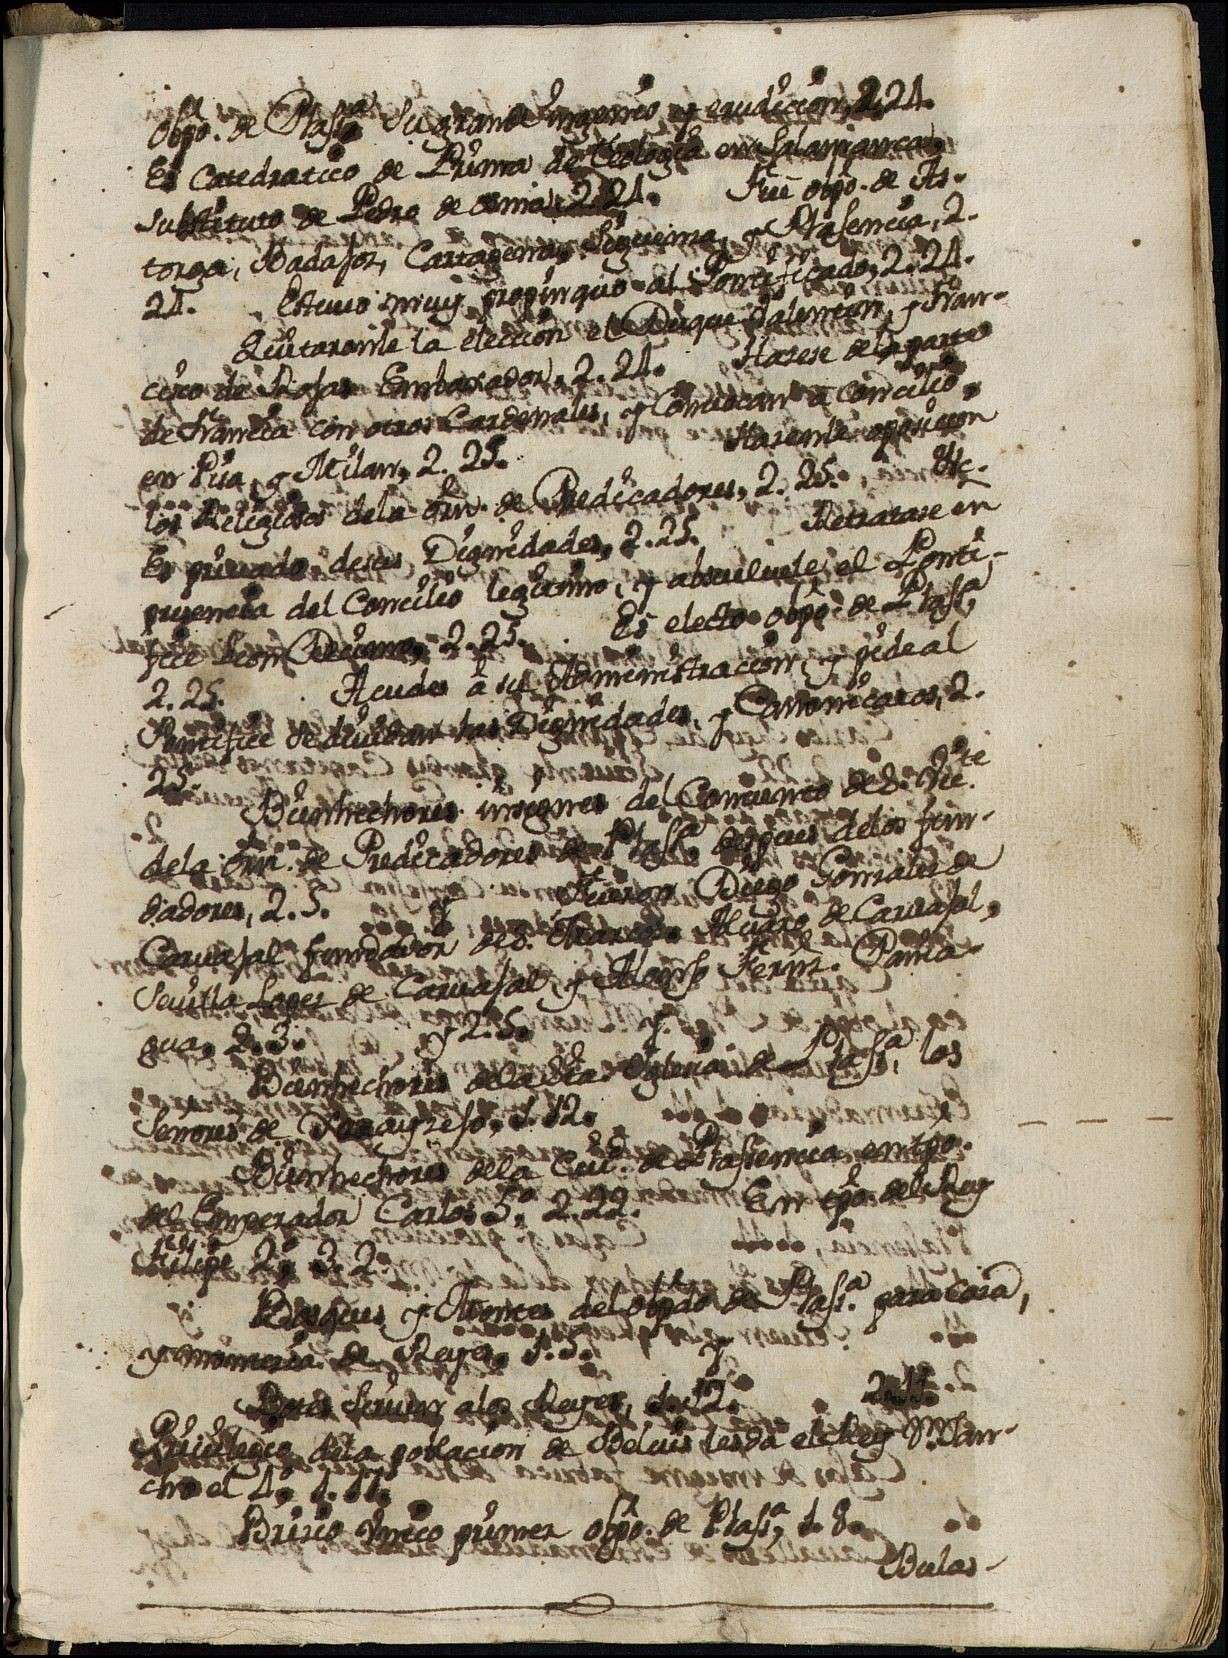 obpo. de Plasª. Su grande ingenio, y erudicion, 2. 24.
Es Catedratico de Prima de Teologia en Salamanca,
substituto de Pedro de osma, 2. 24. Fue obpo. de As-
torga, Badajoz, Cartagena, Siguenza, y Plasencia, 2.
24. Estuuo muy propinquo al Pontificado, 2. 24.
Quitaronle la eleccion el Duque Valentin, y Fran-
cisco de Rojas Embaxador, 2. 24. Hazese dela parte
de Francia con otros Cardenales, y Conuocan a Concilio,
en Pisa, y Milan, 2. 25. Hazenle oposicion
los Religiosos dela orn. de Predicadores, 2. 25.
Es priuado desus Dignidades, 2. 25. Retratase en
presencia del Concilio legitimo, y absueluele el Ponti-
fice Leon Decimo, 2. 25. Es electo obpo. de Plasª,
2. 25. Acude à su Administracion, y pide al
Pontifice se diuidan las Dignidades, y Canonicatos, 2.
25.
Bienhechores insignes del Conuento de S. Victe.
dela orn. de Predicadores de Plasª. despues delos fun-
dadores, 2. 3. Fueron Diego Gonzalez de
Carvajal fundador de S. Franco. Aluaro de Carvajal,
Seuilla Lopez de Carvajal, y Alonso Fernz. Pania-
gua, 2. 3. y 2. 5.
Bienhechores dela Sta. Iglesia de Plasª, los
Señores de 1. 12.
Bienhechores dela Ciud. de Plasencia en tpo.
del Emperador Carlos 5º, 2. 22. En tpo. del Rey
Felipe 2º, 3. 2.
Bosques, y Montes del obpdo de Plasª. para caza,
y monteria de Reyes, 1. 3.
siruen a los Reyes, 1. 12. 2. 11.
Priuilegio dela poblacion de Beluis lesda el Rey Dn. San-
cho el 4º, 1. 17.
Bricio vnico primer obpo. de Plasª, 1. 8.
Bulas-